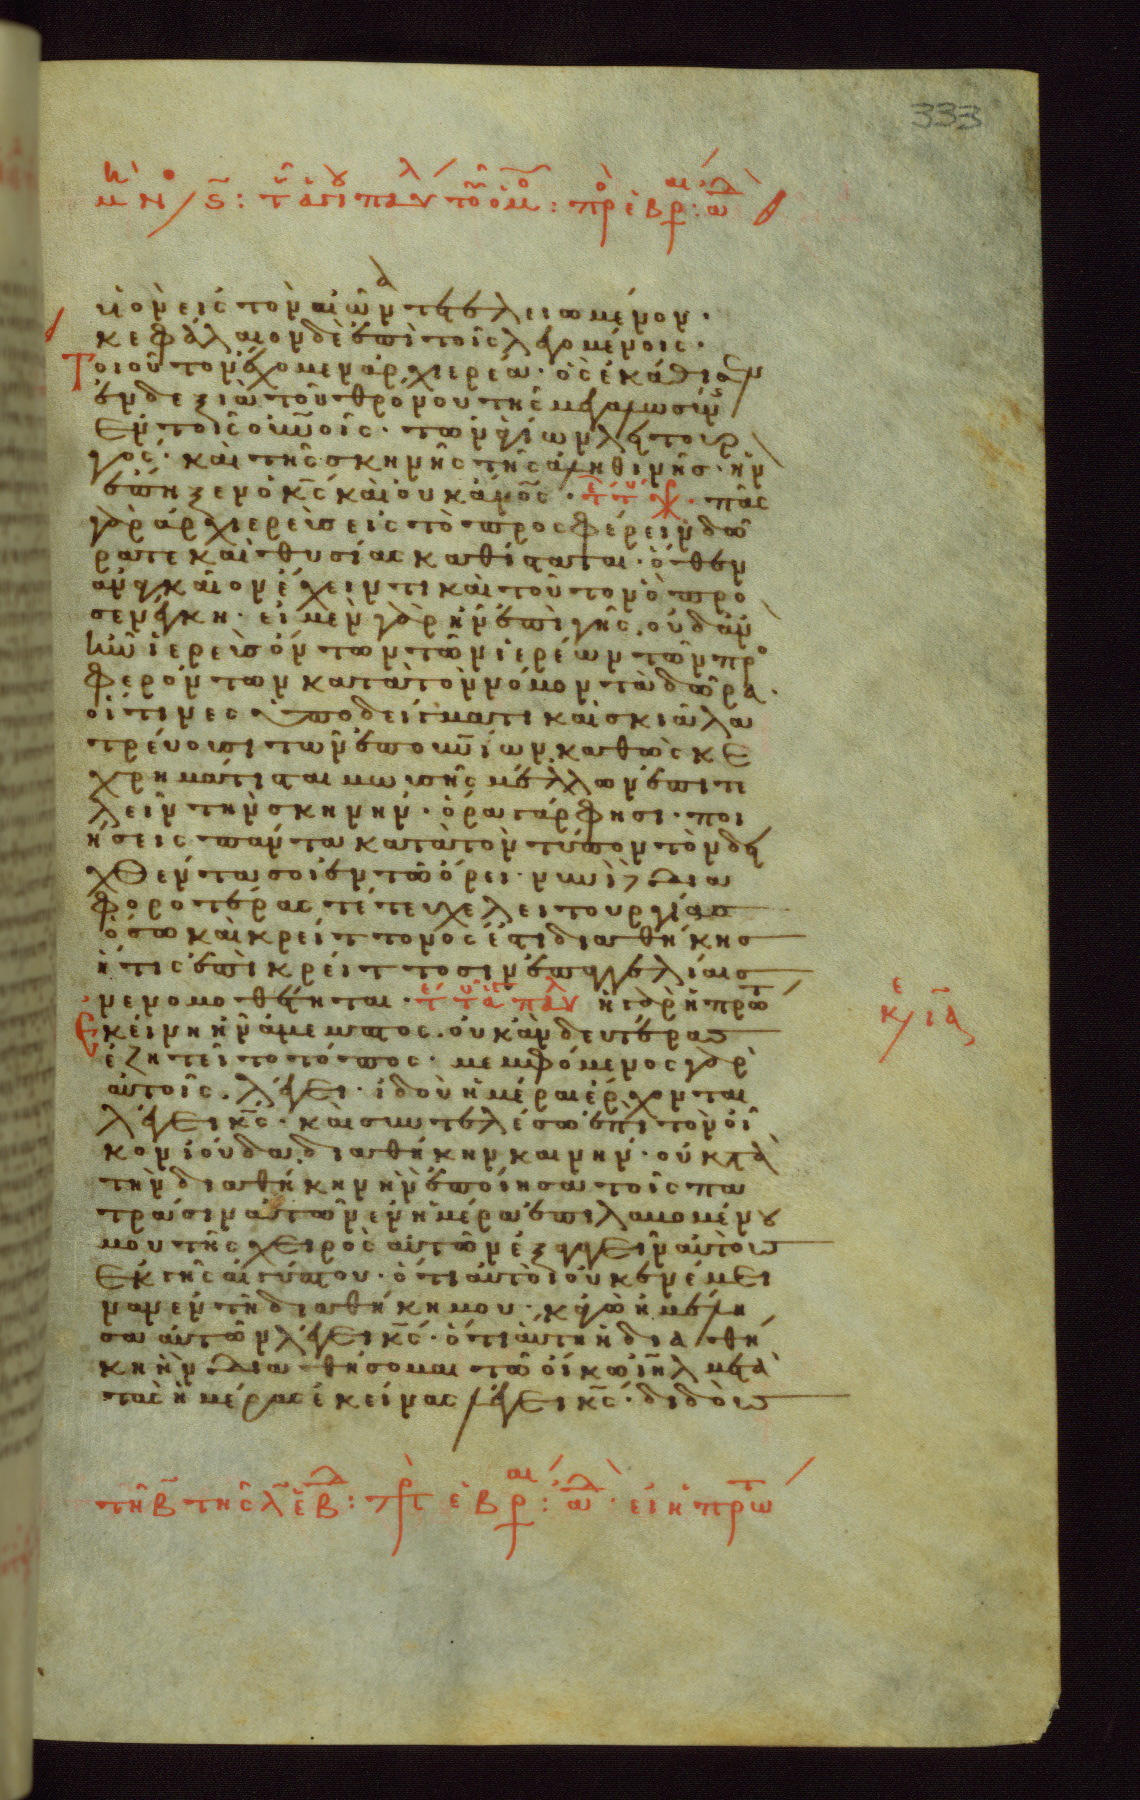 333
υἱὸν εἰς τὸν αἰῶνα τετελειωμένον.
κεφάλαιον δὲ ἐπὶ τοῖς λεγομένοις.
Τοιοῦτον ἔχομεν ἀρχιερέα. ὃς ἐκάθισεν
ἐν δεξιᾷ τοῦ θρόνου τῆς μεγαλωσύνης
ἐν τοῖς οὐνοῖς. τῶν ἁγίων λειτουρ
γός. καὶ τῆς σκηνῆς τῆς ἀληθινῆς. ἣν
ἔπηξεν ὁ κς καὶ οὐκ ἀνος. πᾶς
γὰρ ἀρχιερεὺς εἰς τὸ προσφέρειν δῶ
ρά τε καὶ θυσίας καθίσταται. ὅθεν
ἀναγκαῖον ἔχειν τι καὶ τοῦτον ὃ προ
σενέγκη. εἰ μὲν γὰρ ἦν ἐπὶ γῆς. οὐδ' ἂν
ἦν ἱερεὺς ὄντων τῶν ἱερέων τῶν προ
φερόντων κατὰ τὸν νόμον τὰ δῶρα.
οἵτινες ὑποδείγματι καὶ σκιᾷ λα
τρεύουσι τῶν ἐπουνίων. καθὼς κε
χρημάτισται μωυσῆς μέλλων ἐπιτε
λεῖν τὴν σκηνήν. ὅρα γάρ φησι. ποι
ήσεις πάντα κατὰ τὸν τύπον τὸν δει
χθέντα σοι ἐν τῷ ὄρει. νυνὶ δὲ δια
φοροτέρας τέτευχε λειτουργίας
ὅσῳ καὶ κρείττονος ἐστι διαθήκης
ἥτις ἐπὶ κρείττοσιν ἐπαγγελίαις
νενομοθέτηται. εἰ γὰρ ἡ πρώτη
ἐκείνη ἦν ἄμεμπτος. οὐκ ἂν δευτέρας
ἐζητεῖτο τόπος. μεμφόμενος γὰρ
αὐτοῖς. λέγει. ἰδοὺ ἡμέραι ἔρχονται
λέγει κς. καὶ συντελέσω ἐπὶ τὸν οἶ
κον ἰούδα διαθήκην καινήν. οὐ κατὰ
τὴν διαθήκην ἣν ἐποίησα τοῖς πα
τράσιν αὐτῶν ἐν ἡμέρᾳ ἐπιλαβομένου
μου τῆς χειρὸς αὐτῶν ἐξαγαγεῖν αὐτοὺς
ἐκ γῆς αἰγύπτου. ὅτι αὐτοὶ οὐκ ἐνέμει
ναν ἐν τῇ διαθήκη μου. κἀγὼ ἠμέλη
σα αὐτῶν λέγει κς. ὅτι αὕτη ἡ διαθή
κη ἣν διαθήσομαι τῷ οἴκῳ ιηλ μετὰ
τὰς ἡμέρας ἐκείνας λέγει κς. διδοὺς